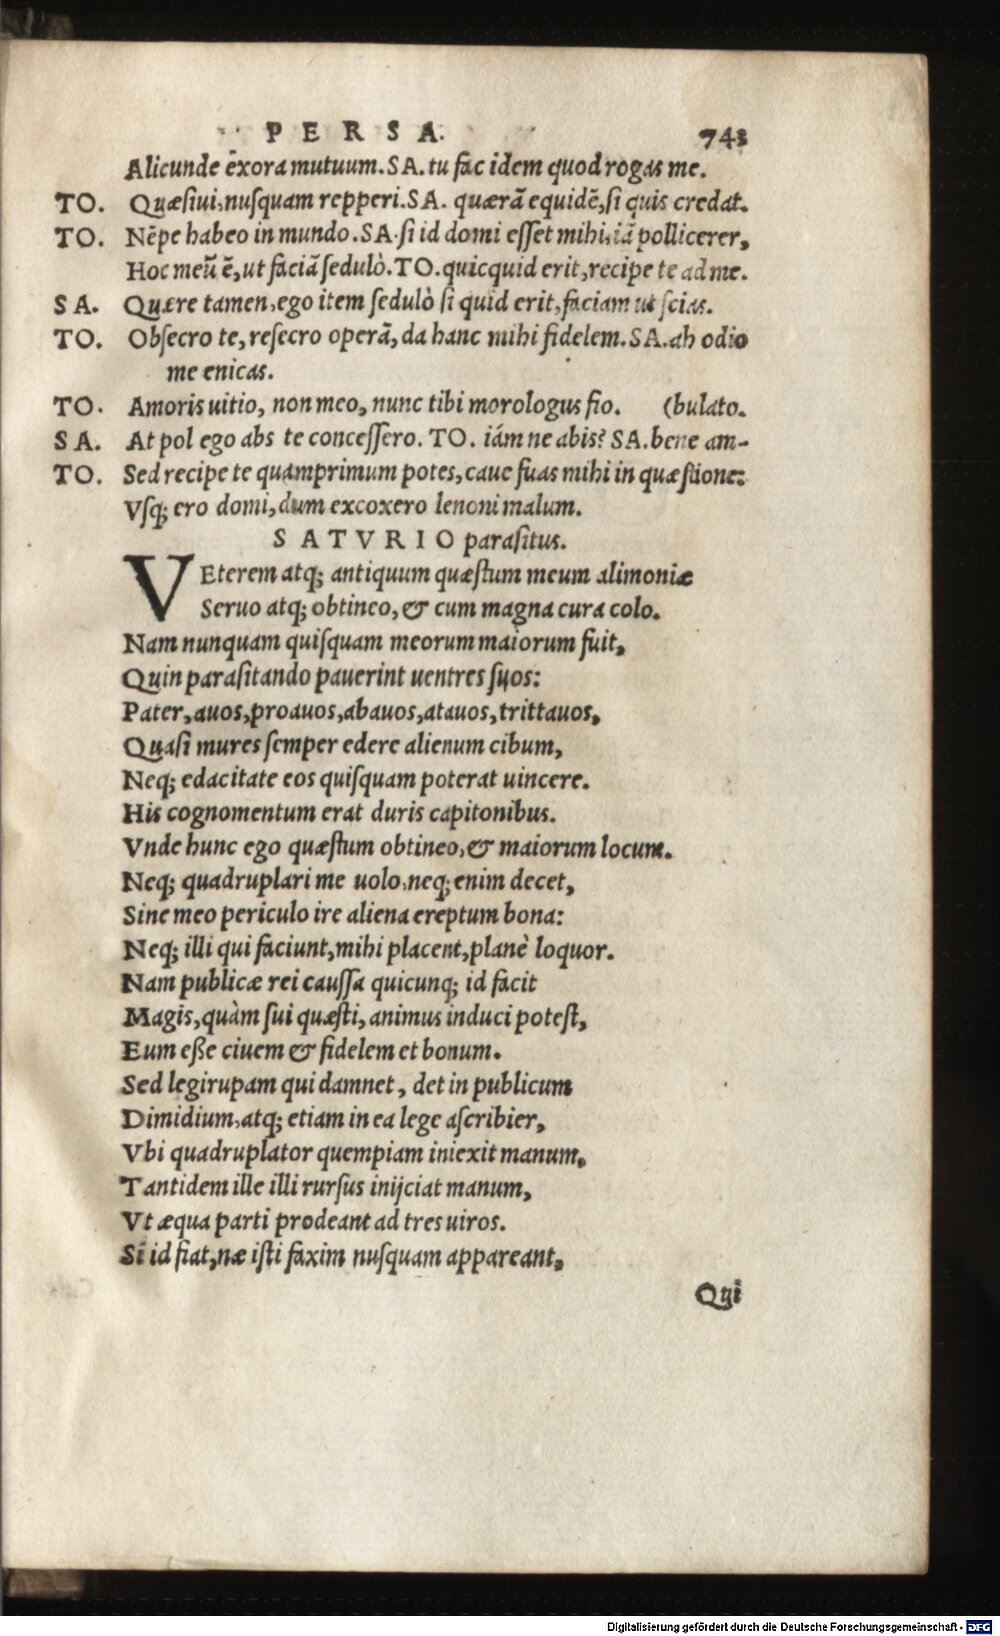 PERSA. 743
Alicunde ēxora mutuum. SA. tu fac idem quod rogas me.
TO. Quæsiui, nusquam repperi. SA. quærā equidē, si quis credat.
TO. Nēpe habeo in mundo. SA. si id domi esset mihi, iā pollicerer,
Hoc meū ē, ut faciā sedulò. TO. quicquid erit, recipe te ad me.
SA. Quære tamen, ego item sedulò si quid erit, faciam ut scias.
TO. Obsecro te, resecro operā, da hanc mihi fidelem. SA. ah odio
me enicas.
TO. Amoris uitio, non meo, nunc tibi morologus fio. (bulato.
SA. At pol ego abs te concessero. TO. iám ne abis? SA. bene am-
TO. Sed recipe te quamprimum potes, caue fuas mihi in quæstione:
Vsq; ero domi, dum excoxero lenoni malum.
SATVRIO parasitus.
VEterem atq; antiquum quæstum meum alimoniæ
Seruo atq; obtineo, & cum magna cura colo.
Nam nunquam quisquam meorum maiorum fuit,
Quin parasitando pauerint uentres suos:
Pater, auos, proauos, abauos, atauos, trittauos,
Quasi mures semper edere alienum cibum,
Neq; edacitate eos quisquam poterat uincere.
His cognomentum erat duris capitonibus.
Vnde hunc ego quæstum obtineo, & maiorum locum.
Neq; quadruplari me uolo, neq; enim decet,
Sine meo periculo ire aliena ereptum bona:
Neq; illi qui faciunt, mihi placent, planè loquor.
Nam publicæ rei caussa quicunq; id facit
Magis, quàm sui quæsti, animus induci potest,
Eum eße ciuem & fidelem et bonum.
Sed legirupam qui damnet, det in publicum
Dimidium, atq; etiam in ea lege ascribier,
Vbi quadruplator quempiam iniexit manum,
Tantidem ille illi rursus inijciat manum,
Vt æqua parti prodeant ad tres uiros.
Si id fiat, næ isti faxim nusquam appareant,
Qui
Digitalisierung gefördert durch die Deutsche Forschungsgemeinschaft - DFG